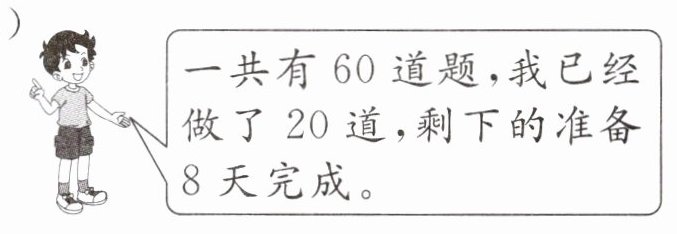 )
一共有 60 道题，我已经
做了 20 道，剩下的准备
8 天完成。